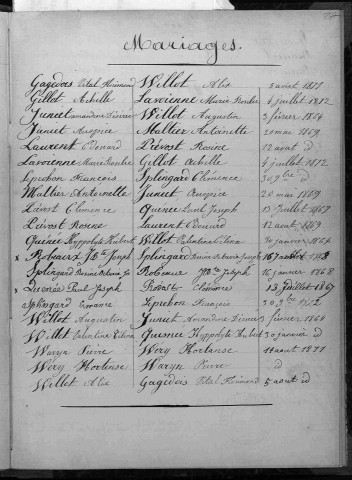 Mariages.
Gagedois Vital Fleimond Willot Alix 5 aout 1871
Gillot Achille Lavoienne Marie Rosalie 4 juillet 1872
Junict Amandine Désirée Willot Augustin 3 février 1864
Junict Auspice Malhier Antoinette 20 mai 1869
Laurent Edouard Liévost Rosine 12 aout d
Lavoienne Marie Rosalie Gillot Achille 4 juillet 1872
Lepehon François Splingard Clémence 30 9bre d
Malhier Antoinette Junict Auspice 20 mai 1869
Liévost Clémence Quenée Paul Joseph 13 juillet 1867
Liévost Rosine Laurent Edouard 12 aout 1869
Quenée Hyppolyte Hubert Willot Valentine Elina 30 janvier 1864
x Robeaux Jbte Joseph Splingard 16 janvier 1868
Splingard Robeaux Jbte Joseph 16 janvier 1868
x Quenée Paul Joseph Clémence 13 juillet 1867
Splingard Lepehon François 30 9bre 1872
Willot Augustin Junict Amandine Désirée 3 février 1864
Willot Valentine Elina Quenée Hyppolyte Hubert 30 janvier d
Waryn Pierre Wery Hortense 11 aout 1871
Wery Hortense Waryn Pierre d
Willot Alix Gagedois Vital Fleimond 5 aout d